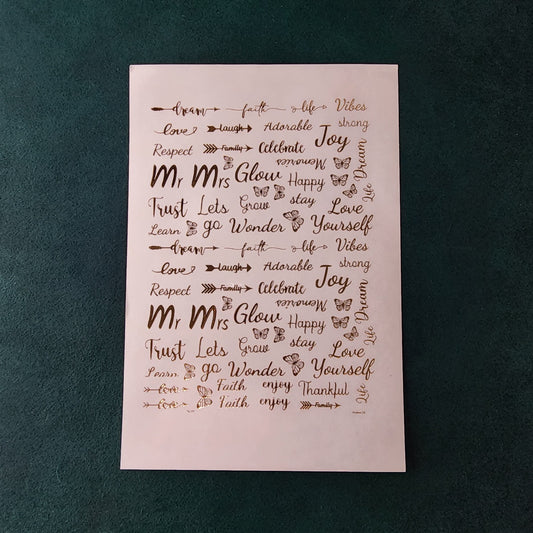 dream faith life Vibes
love Laugh Adorable strong
Respect Family Celebrate Joy
Memories Dream
Mr Mrs Glow Happy
Life
Trust Lets Grow stay Love
Learn go Wonder Yourself
dream faith life Vibes
love Laugh Adorable strong
Respect Family Celebrate Joy
Memories Dream
Mr Mrs Glow Happy
Life
Trust Lets Grow stay Love
Learn go Wonder Yourself
love Faith enjoy Thankful Life
love Faith enjoy Family